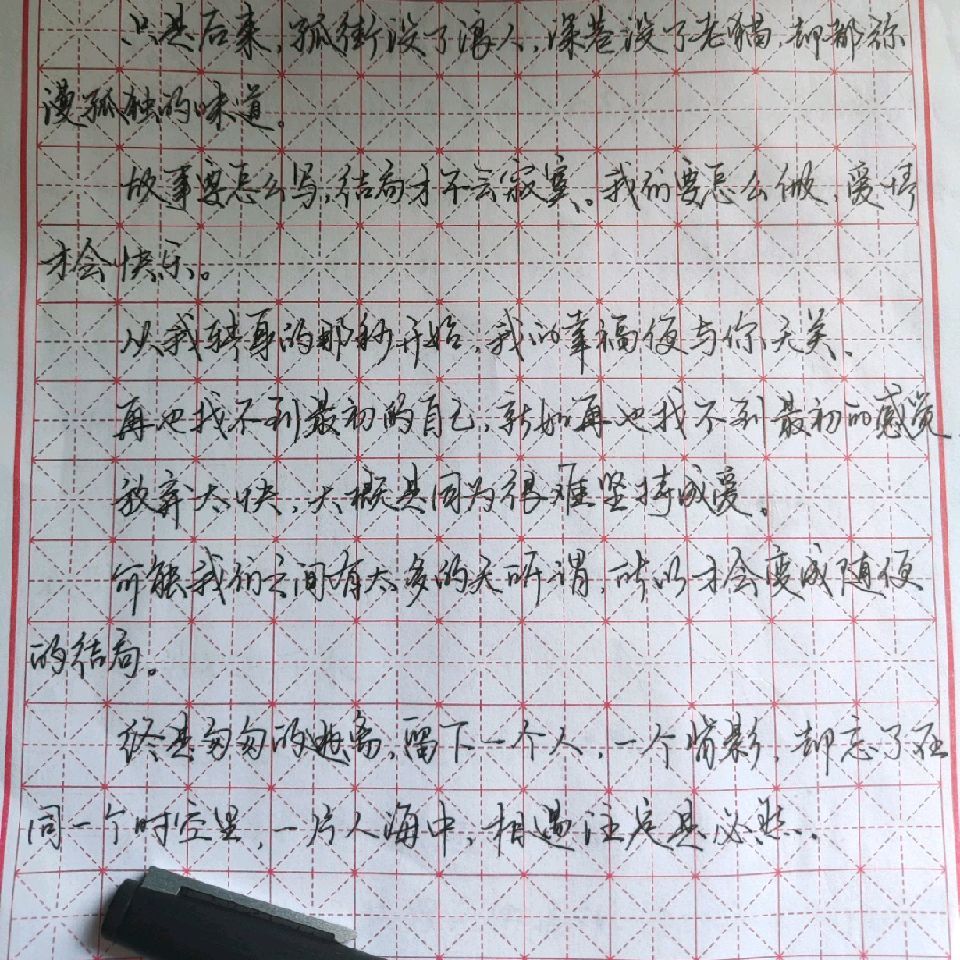 只是后来，孤街没了浪人，深巷没了老猫，却都弥
漫孤独的味道。
故事要怎么写，结局才不会寂寞、我们要怎么做，爱情
才会快乐。
从我转身的那秒开始，我的幸福便与你无关、
再也找不到最初的自己，就如再也找不到最初的感觉
放弃太快，大概是因为很难坚持成爱。
可能我们之间有太多的无所谓，所以才会变成随便
的结局。
终是匆匆的逃离，留下一个人，一个背影，却忘了在
同一个时空里，一片人海中，相遇注定是必然．